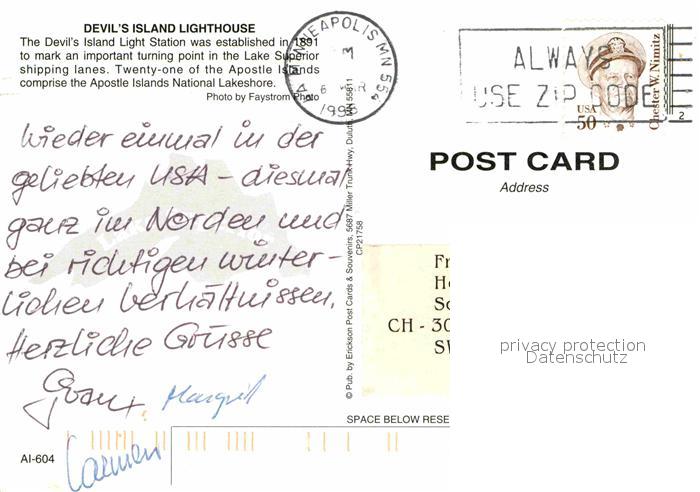 DEVIL'S ISLAND LIGHTHOUSE
The Devil's Island Light Station was established in 1891
to mark an important turning point in the Lake Superior
shipping lanes. Twenty-one of the Apostle Islands
comprise the Apostle Islands National Lakeshore.
Photo by Faystrom Photo
MINNEAPOLIS MN 554
1998
ALWAYS
USE ZIP CODE
USA
50
Chester W. Nimitz
2
wieder einmal in der
geliebten USA – diesmal
ganz im Norden und
bei richtigen winter-
lichen Verhältnissen.
Herzliche Grüsse
Margrit
Carmen
© Pub. by Erickson Post Cards & Souvenirs, 5687 Miller Trunk Hwy, Duluth, MN 55811
CP21758
POST CARD
Address
Fr
He
So
CH - 30
SW
privacy protection
Datenschutz
SPACE BELOW RESE
AI-604